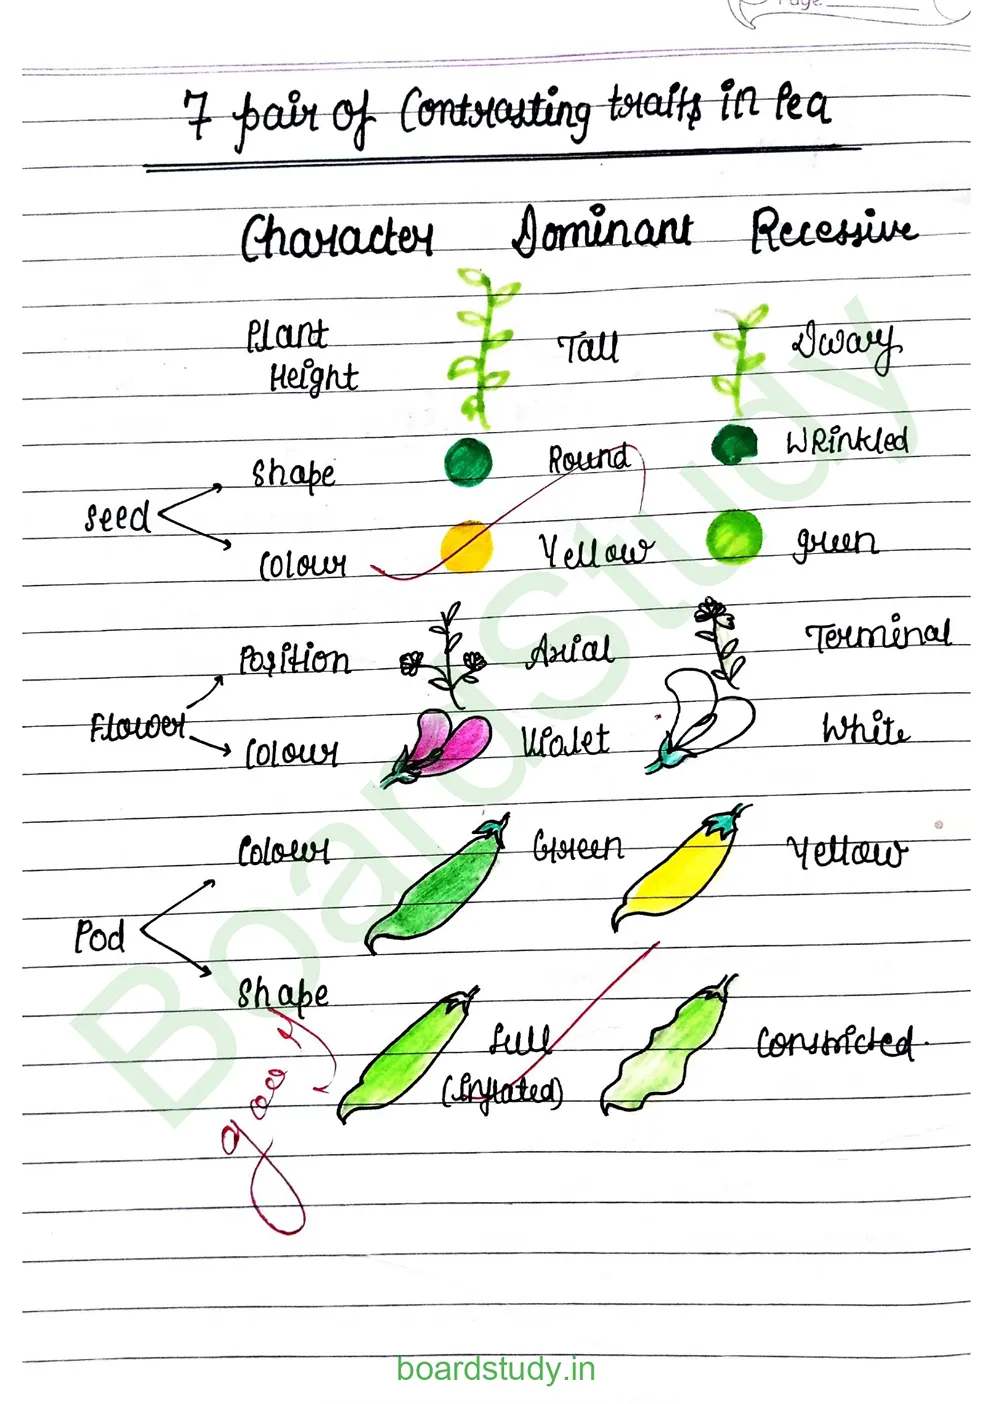 Page
7 pair of Contrasting traits in Pea
Character Dominant Recessive
Plant Height Tall Dwarf
Seed
Shape Round Wrinkled
Colour Yellow green
Flower
Position Axial Terminal
Colour Violet White
Pod
Colour Green Yellow
Shape full (Inflated) Constricted.
good
BoardStudy
boardstudy.in